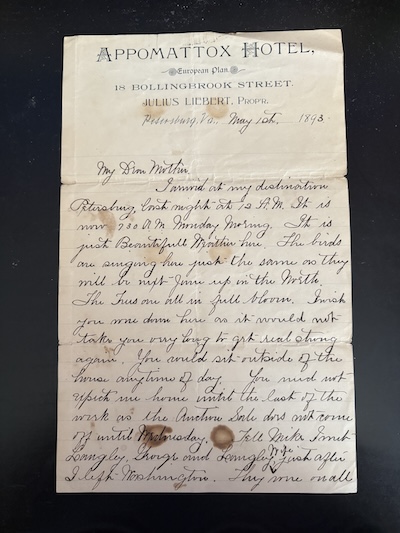 APPOMATTOX HOTEL,
European Plan
18 BOLLINGBROOK STREET.
JULIUS LIEBERT, PROPR.
Petersburg, Va., May 1st, 1893
My Dear Mother
I arrived at my destination
Petersburg last night at 12 P.M. It is
now 730 A M Monday Morning. It is
just Beautifull Weather here. The birds
are singing here just the same as they
will be next June up in the North.
The Trees are all in full bloom. I wish
you were down here as it would not
take you very long to get real strong
again. You could sit outside of the
house anytime of day. You need not
expect me home until the last of the
week as the Auction Sale does not come
off until Wednesday. Tell Mike I met
Langley, George and Langleys Wife just after
I left Washington. They were on all